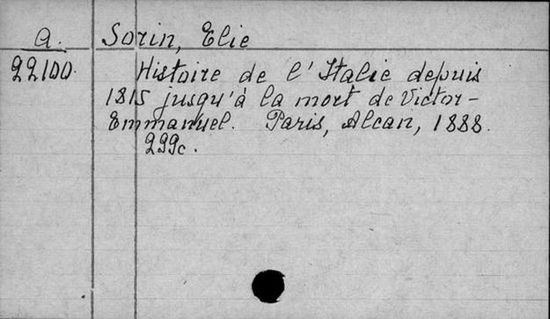 A. Sorin, Elie
22100. Histoire de l'Italie depuis
1815 jusqu'à la mort de Victor-
Emmanuel. Paris, Alcan, 1888.
299c.